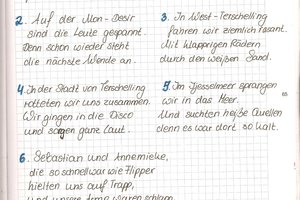 2. Auf der Mon-Desir
sind die Leute gespannt.
Denn schon wieder steht
die nächste Wende an.
3. In West-Terschelling
fahren wir ziemlich rasant.
Mit klapprigen Rädern
durch den weißen Sand.
4. In der Stadt von Terschelling
rotteten wir uns zusammen.
Wir gingen in die Disco
und sangen ganz laut.
5. Im Ijesselmeer sprangen
wir in das Meer.
Und suchten heiße Quellen
denn es war dort so kalt.
6. Sebastian und Annemieke,
die so schnell war wie Flipper
hielten uns auf Trapp,
und unsere Arme waren schlapp